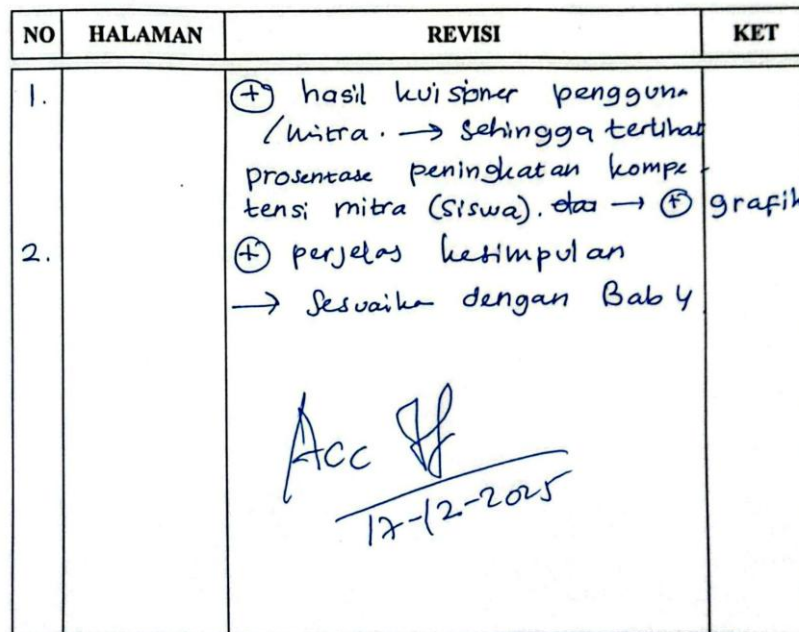 NO HALAMAN REVISI KET
1. (+) hasil kuisioner pengguna
/mitra. → Sehingga terlihat
prosentase peningkatan kompe-
tensi mitra (siswa). → (+) grafik
2. (+) perjelas kesimpulan
→ Sesuaikan dengan Bab 4
Acc
17-12-2025